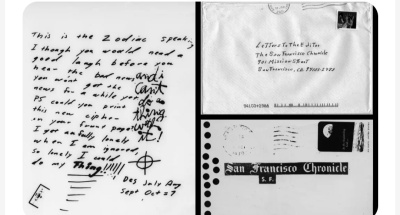 This is the Zodiac speaking
I though you would need a
good laugh before you
hear the bad news
you won't get the
news for a while yet
PS could you print
this new cipher
in your frunt page?
I get awfully lonely
when I am ignored,
so lonely I could
do my Thing!!!!!!
and i
can't
do a
thing
with
it!
Des July Aug
Sept Oct = 7
Letters To The Editor
The San Francisco Chronicle
San Francisco, CA
San Francisco Chronicle
S. F.